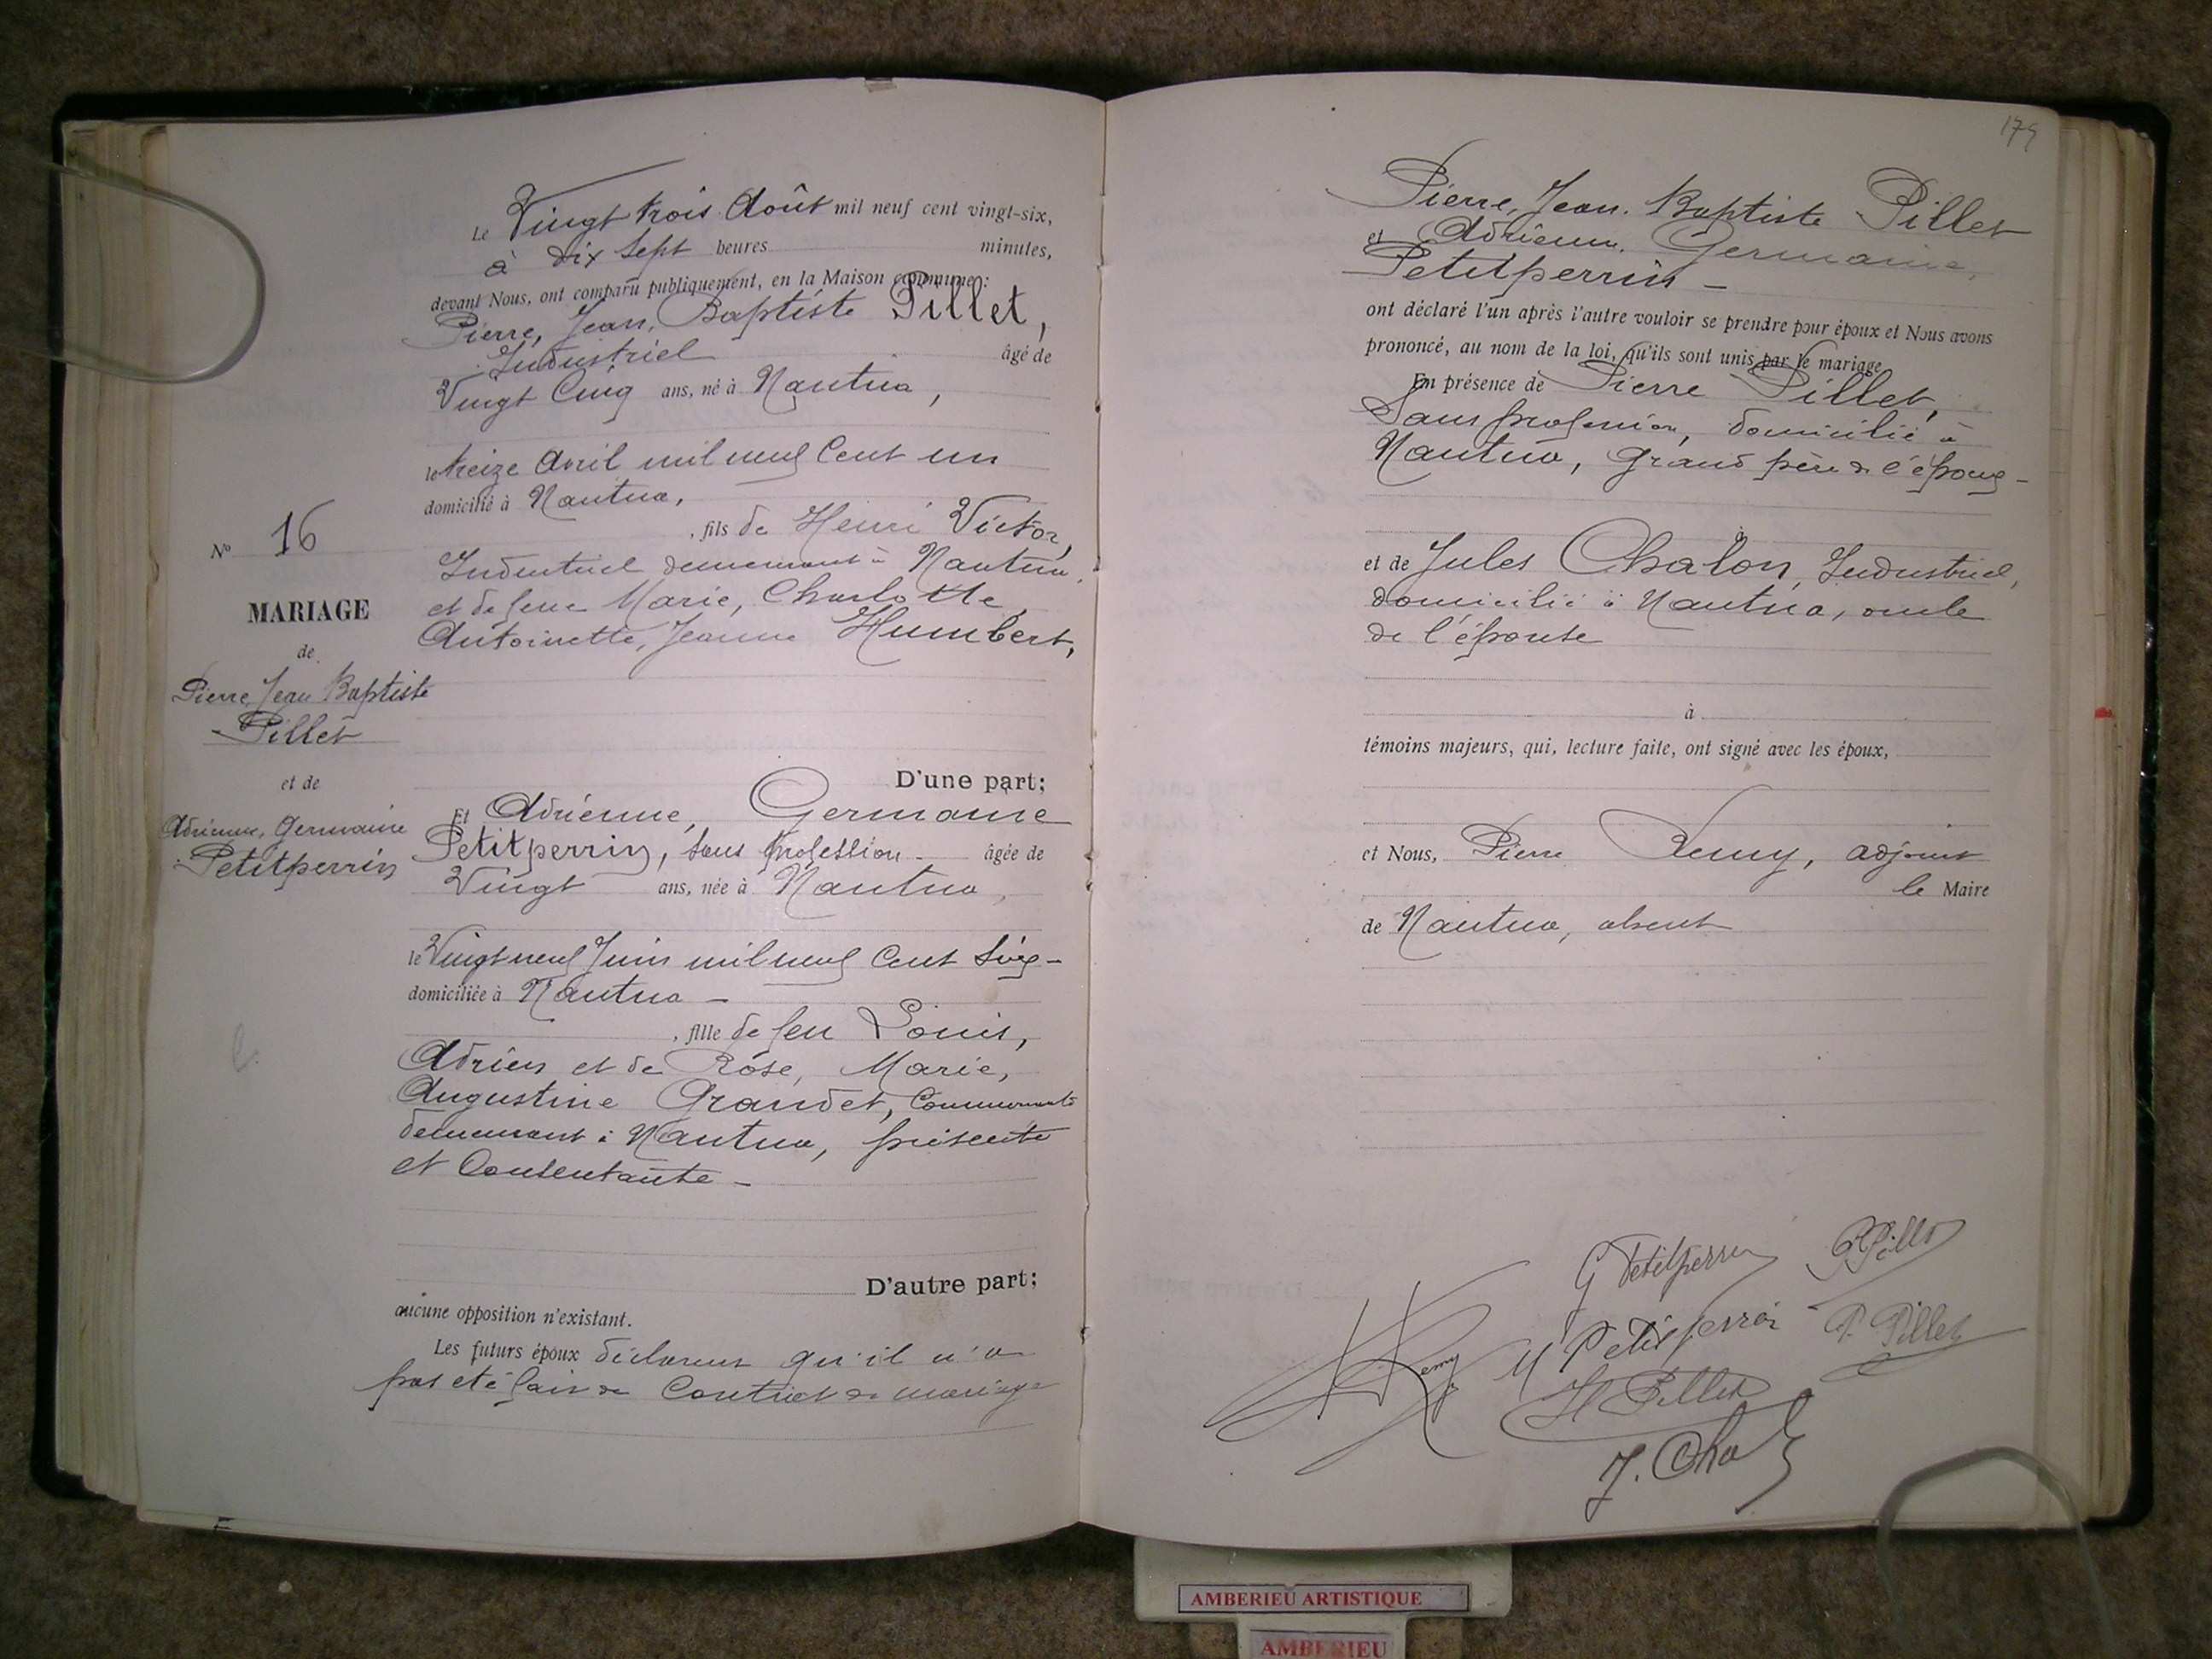 Le Vingt trois Août mil neuf cent vingt-six,
à dix sept heures minutes,
devant Nous, ont comparu publiquement, en la Maison commune :
Pierre, Jean, Baptiste Pillet,
Industriel âgé de
Vingt Cinq ans, né à Nantua,
le treize Avril mil neuf Cent un
domicilié à Nantua,
, fils de Henri Victor,
Industriel demeurant à Nantua,
et de feue Marie, Charlotte,
Antoinette, Jeanne Humbert,
No 16
MARIAGE
de
Pierre, Jean Baptiste
Pillet
et de
Adrienne, Germaine
Petitperrin
D'une part;
Et Adrienne, Germaine
Petitperrin, sans profession - âgée de
Vingt ans, née à Nantua,
le Vingt neuf Juin mil neuf Cent Six -
domiciliée à Nantua -
, fille de feu Louis,
Adrien et de Rose, Marie,
Augustine Grandet, Commerçante
demeurant à Nantua, présente
et Consentante -
D'autre part;
aucune opposition n'existant.
Les futurs époux déclarent qu'il n'a
pas été fait de Contrat de mariage
179
Pierre, Jean, Baptiste Pillet
et Adrienne, Germaine,
Petitperrin -
ont déclaré l'un après l'autre vouloir se prendre pour époux et Nous avons
prononcé, au nom de la loi, qu'ils sont unis par le mariage
En présence de Pierre Pillet,
Sans profession, domicilié à
Nantua, Grand père de l'époux -
et de Jules Chalon, Industriel,
domicilié à Nantua, oncle
de l'épouse
à
témoins majeurs, qui, lecture faite, ont signé avec les époux,
et Nous, Pierre Remy, adjoint
le Maire
de Nantua, absent
G Petitperrin P Pillet
Remy M Petitperrin P. Pillet
H Pillet
J. Chal
AMBERIEU ARTISTIQUE
AMBERIEU